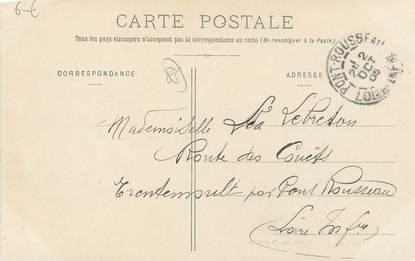 6-€
CARTE POSTALE
Tous les pays étrangers n'acceptent pas la correspondance au recto (Se renseigner à la Poste)
CORRESPONDANCE
ADRESSE
PONT-ROUSSEAU
2
OCT
05
LOIRE INFRE
Mademoiselle Léa Lebreton
Route des Couëts
Trentemoult par Pont Rousseau
(Loire Infre)